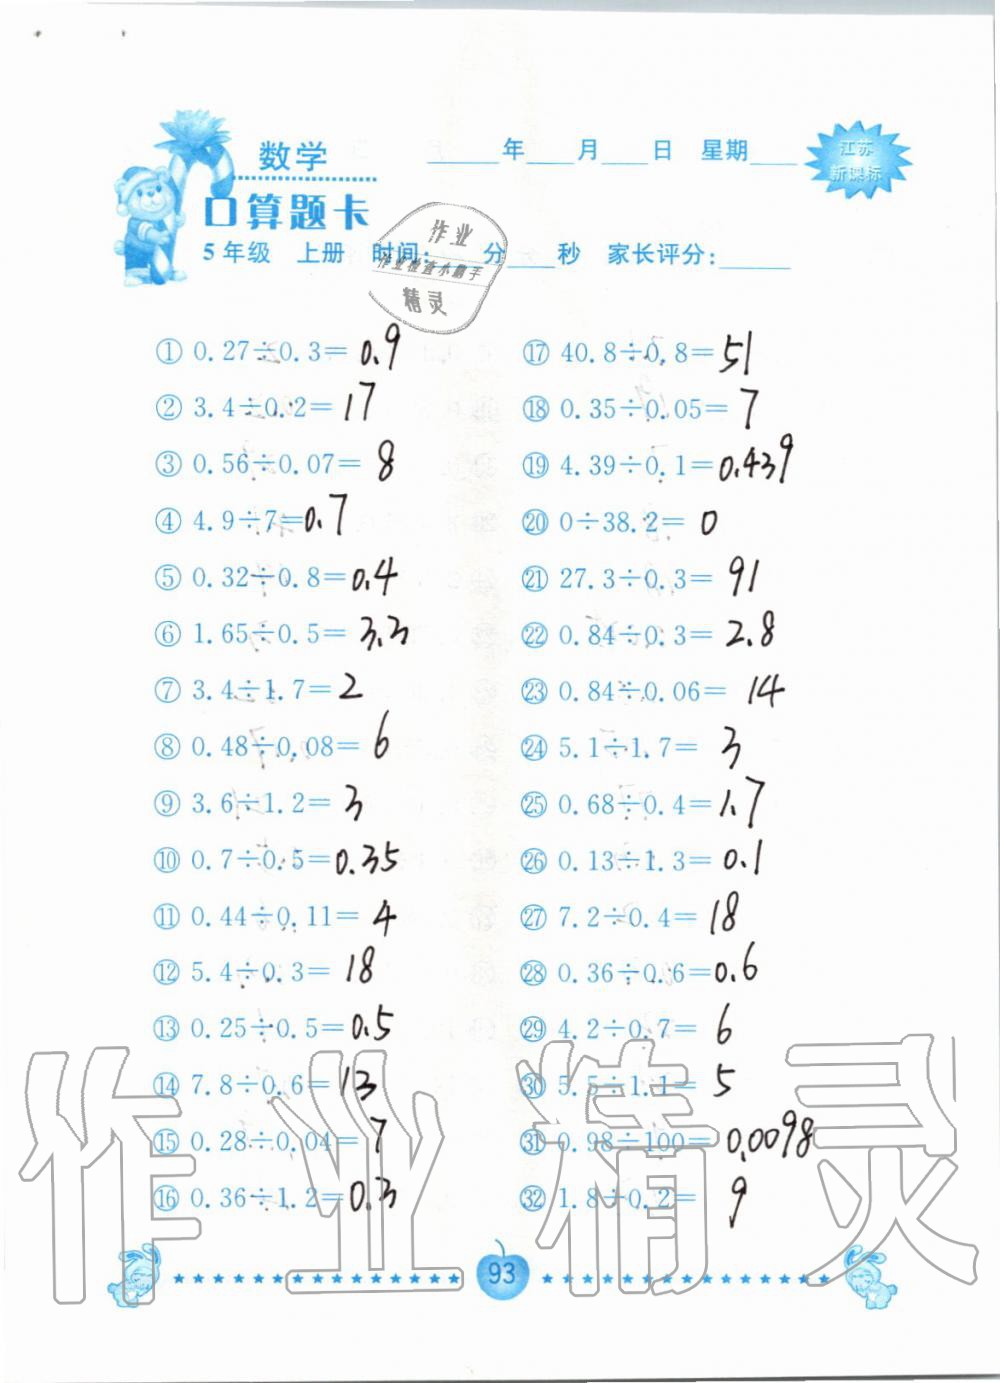 数学
____年____月____日 星期____
江苏
新课标
口算题卡
5年级 上册 时间：____分____秒 家长评分：____
作业
作业检查小帮手
精灵
① 0.27÷0.3=0.9
② 3.4÷0.2=17
③ 0.56÷0.07=8
④ 4.9÷7=0.7
⑤ 0.32÷0.8=0.4
⑥ 1.65÷0.5=3.3
⑦ 3.4÷1.7=2
⑧ 0.48÷0.08=6
⑨ 3.6÷1.2=3
⑩ 0.7÷0.5=0.35
⑪ 0.44÷0.11=4
⑫ 5.4÷0.3=18
⑬ 0.25÷0.5=0.5
⑭ 7.8÷0.6=13
⑮ 0.28÷0.04=7
⑯ 0.36÷1.2=0.3
⑰ 40.8÷0.8=51
⑱ 0.35÷0.05=7
⑲ 4.39÷0.1=0.439
⑳ 0÷38.2=0
㉑ 27.3÷0.3=91
㉒ 0.84÷0.3=2.8
㉓ 0.84÷0.06=14
㉔ 5.1÷1.7=3
㉕ 0.68÷0.4=1.7
㉖ 0.13÷1.3=0.1
㉗ 7.2÷0.4=18
㉘ 0.36÷0.6=0.6
㉙ 4.2÷0.7=6
㉚ 5.5÷1.1=5
㉛ 0.98÷100=0.0098
㉜ 1.8÷0.2=9
作业精灵
93